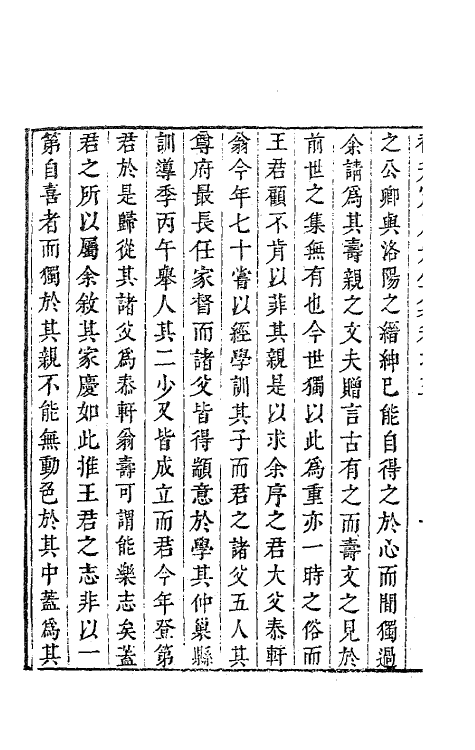 之公卿與洛陽之縉紳已能自得之於心而間獨過
余請爲其壽親之文夫贈言古有之而壽文之見於
前世之集無有也今世獨以此爲重亦一時之俗而
王君顧不肯以菲其親是以求余序之君大父泰軒
翁今年七十嘗以經學訓其子而君之諸父五人其
尊府最長任家督而諸父皆得顓意於學其仲巢縣
訓導季丙午舉人其二少又皆成立而君今年登第
君於是歸從其諸父爲泰軒翁壽可謂能樂志矣蓋
君之所以屬余敘其家慶如此推王君之志非以一
第自喜者而獨於其親不能無動色於其中蓋爲其